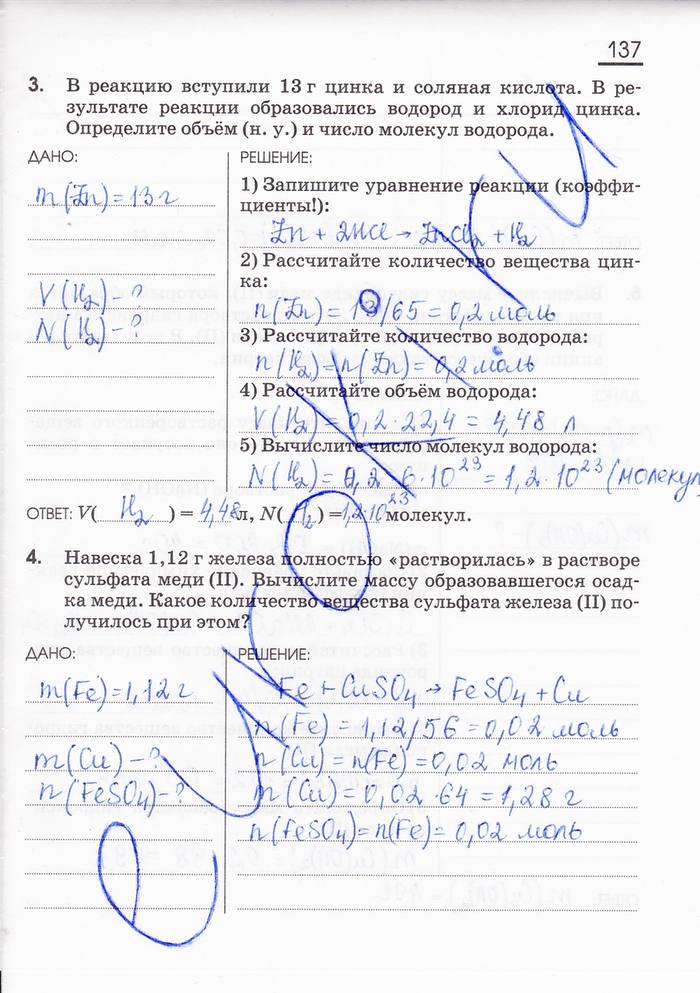 137
3. В реакцию вступили 13 г цинка и соляная кислота. В ре-
зультате реакции образовались водород и хлорид цинка.
Определите объём (н. у.) и число молекул водорода.
ДАНО:
m(Zn)=13 г
V(H₂)-?
N(H₂)-?
РЕШЕНИЕ:
1) Запишите уравнение реакции (коэффи-
циенты!):
Zn + 2HCl → ZnCl₂ + H₂
2) Рассчитайте количество вещества цин-
ка:
n(Zn) = 13/65 = 0,2 моль
3) Рассчитайте количество водорода:
n(H₂) = n(Zn) = 0,2 моль
4) Рассчитайте объём водорода:
V(H₂) = 0,2·22,4 = 4,48 л
5) Вычислите число молекул водорода:
N(H₂) = 0,2·6·10²³ = 1,2·10²³ (молекул
ОТВЕТ: V( H₂ ) = 4,48 л, N( H₂ ) = 1,2·10²³ молекул.
4. Навеска 1,12 г железа полностью «растворилась» в растворе
сульфата меди (II). Вычислите массу образовавшегося осад-
ка меди. Какое количество вещества сульфата железа (II) по-
лучилось при этом?
ДАНО:
m(Fe)=1,12 г
m(Cu)-?
n(FeSO₄)-?
РЕШЕНИЕ:
Fe + CuSO₄ → FeSO₄ + Cu
n(Fe) = 1,12/56 = 0,02 моль
n(Cu) = n(Fe) = 0,02 моль
m(Cu) = 0,02·64 = 1,28 г
n(FeSO₄) = n(Fe) = 0,02 моль